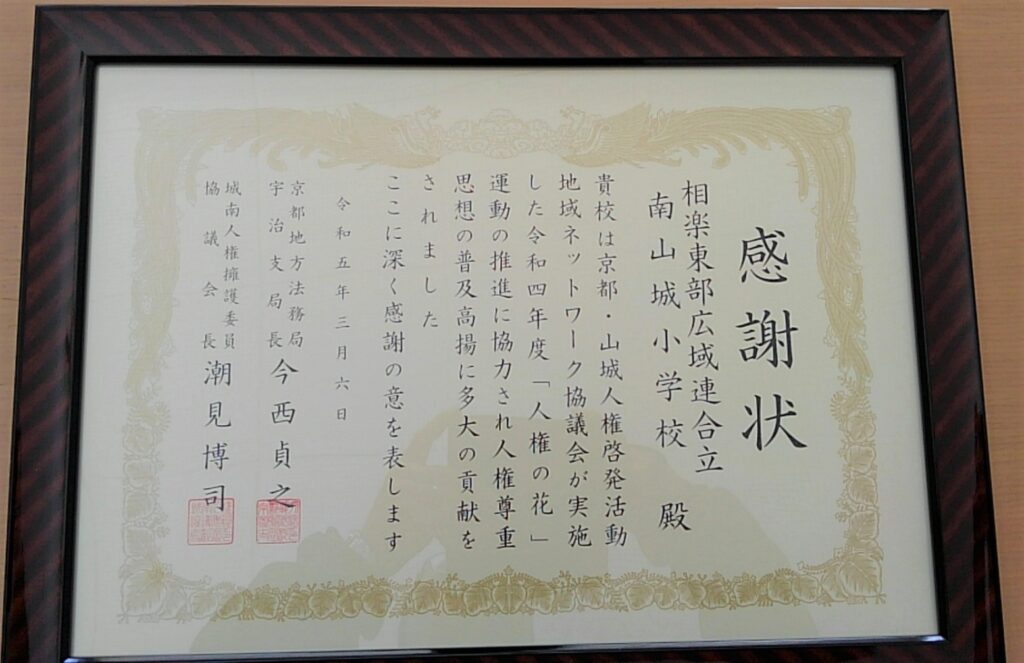 感謝状
相楽東部広域連合立
南山城小学校 殿
貴校は京都・山城人権啓発活動
地域ネットワーク協議会が実施
した令和四年度「人権の花」
運動の推進に協力され人権尊重
思想の普及高揚に多大の貢献を
されました
ここに深く感謝の意を表します
令和五年三月六日
京都地方法務局
宇治支局長 今西貞之
城南人権擁護委員
協議会長 潮見博司